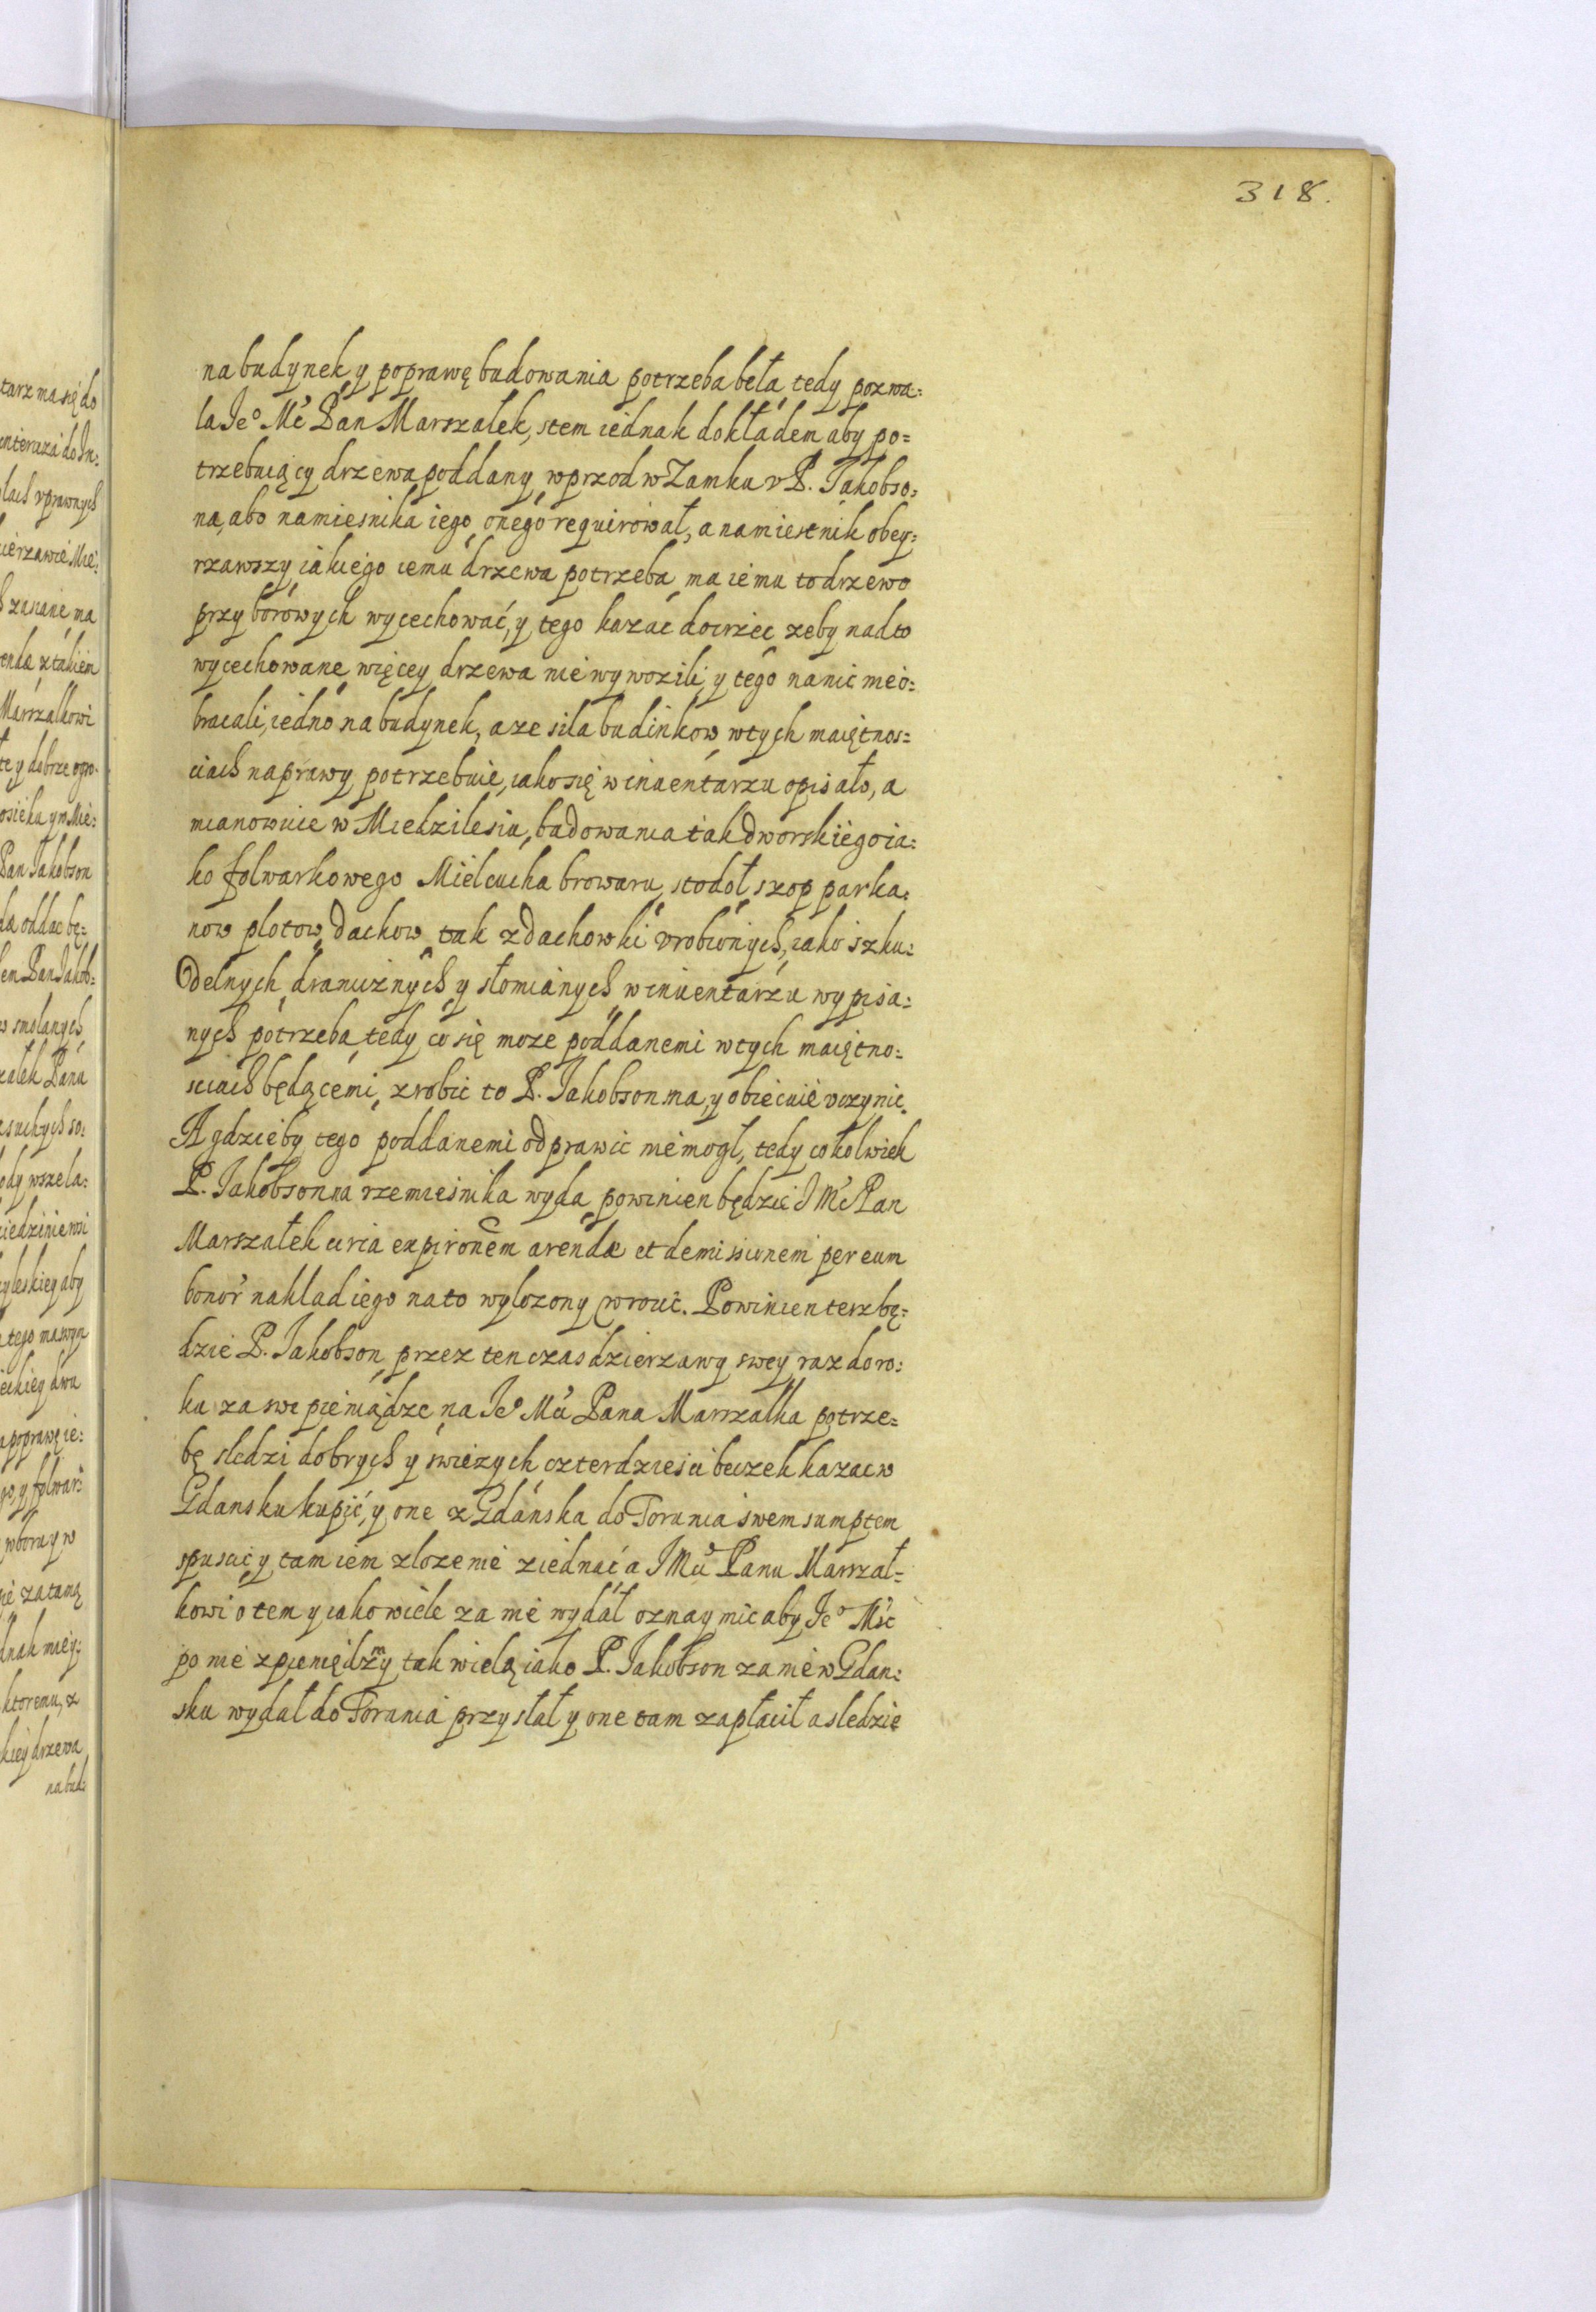 318.
na budynek y poprawę budowania potrzeba beła tedy pozwa:
la Je° Mć Pan Marszałek, stem iednak dokładem aby po=
trzebuiący drzewa poddany wprzod w Zamku v P. Jakobso:
na, abo namiesnika iego onego requirował, a namiestnik obey:
rzawszy iakiego iemu drzewa potrzeba ma iemu to drzewo
przy borowych wycechować, y tego kazać doirzec zeby nad to
wycechowane więcey drzewa nie wywozili y tego na nic nie o:
bracali, iedno na budynek, a ze siła budinkow wtych maiętnos=
ciach naprawy potrzebuie, iako się w inuentarzu opisało, a
mianowicie w Miedzilesiu, budowania tak dworskiego ia:
ko folwarkowego Mielcucha browaru, stodoł szop parka:
now płotow dachow tak z dachowki vrobionych, iako szku:
delnych dranicznych y słomianych winuentarzu wypisa:
nych potrzeba tedy co się moze poddanemi wtych maiętno:
sciach będącemi, zrobic to P. Jakobson ma, y obiecuie vczynic.
A gdzieby tego poddanemi odprawic nie mogł, tedy cokolwiek
P. Jakobson na rzemiesnika wyda powinien będzie J Mć Pan
Marszałek circa expironem arendæ et demissionem per eum
bonor nakład iego na to wylozony wrocic. Powinien tesz bę:
dzie P. Jakobson przez ten czas dzierzawy swey raz do ro:
ku za swe pieniądze na Je° Mci Pana Marszałka potrze=
bę sledzi dobrych y swiezych czterdziesci beczek kazac w
Gdansku kupić, y one z Gdanska do Torunia swem sumptem
spuscic y tam iem złozenie ziednać a J Mci Panu Marszał=
kowi o tem y iako wiele za nie wydał oznaymic aby Je° Mśc
po nie z pieniędzmy tak wielą iako P. Jakobson za nie w Gdan:
sku wydał do Torunia przysłał y one tam zapłacił a sledzie